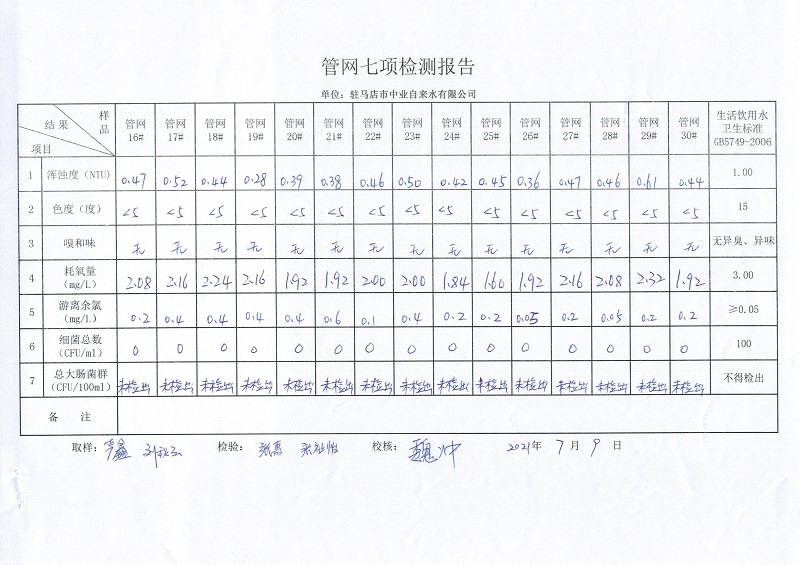 管网七项检测报告
单位：驻马店市中业自来水有限公司
样品 结果 项目 管网16# 管网17# 管网18# 管网19# 管网20# 管网21# 管网22# 管网23# 管网24# 管网25# 管网26# 管网27# 管网28# 管网29# 管网30# 生活饮用水卫生标准GB5749-2006
1 浑浊度（NTU） 0.47 0.52 0.44 0.28 0.39 0.38 0.46 0.50 0.42 0.45 0.36 0.47 0.46 0.61 0.44 1.00
2 色度（度） <5 <5 <5 <5 <5 <5 <5 <5 <5 <5 <5 <5 <5 <5 <5 15
3 嗅和味 无 无 无 无 无 无 无 无 无 无 无 无 无 无 无 无异臭、异味
4 耗氧量（mg/L） 2.08 2.16 2.24 2.16 1.92 1.92 2.00 2.00 1.84 1.60 1.92 2.16 2.08 2.32 1.92 3.00
5 游离余氯（mg/L） 0.2 0.4 0.4 0.4 0.4 0.6 0.1 0.4 0.2 0.2 0.05 0.2 0.05 0.2 0.2 ≥0.05
6 细菌总数（CFU/ml） 0 0 0 0 0 0 0 0 0 0 0 0 0 0 0 100
7 总大肠菌群（CFU/100ml） 未检出 未检出 未检出 未检出 未检出 未检出 未检出 未检出 未检出 未检出 未检出 未检出 未检出 未检出 未检出 不得检出
备 注
取样： 检验： 校核： 2021年 7 月 9 日